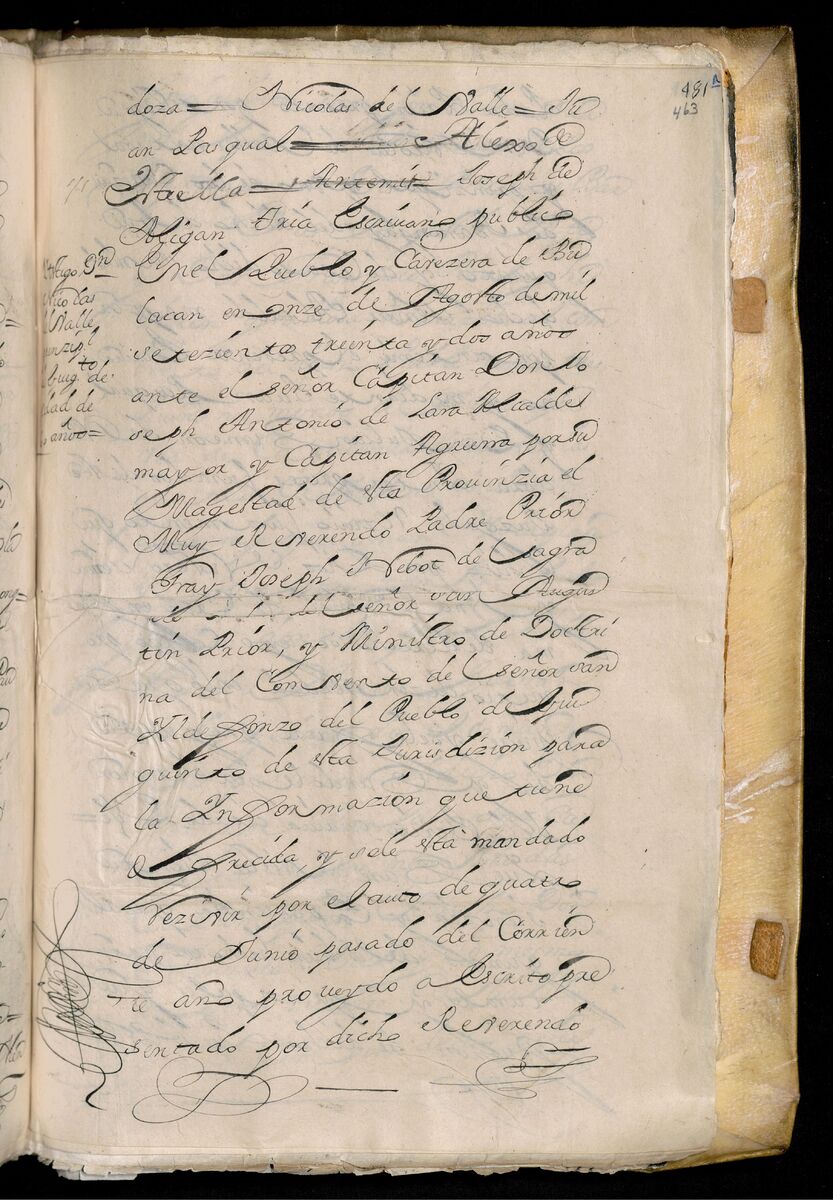 481
463
doza = Nicolas del Valle = Ju
an Pasqual = Alexo de
Estrella = Joseph de
Abigan Fria Escrivano publico
tigo Dn
Nicolas
l Valle
de
dad de
años =
Enel Pueblo y Cavezera de Bu
lacan en onze de Agosto de mil
setezientos treinta y dos años
ante el señor Capitan Don Jo
seph Antonio de Lara Alcalde
mayor y Capitan Aguerra por su
Magestad de esta Provinzia el
Muy Reverendo Padre Prior
Fray Joseph Nebot del sagra
del señor san Augus
tin Prior, y Ministro de Doctri
na del Convento del señor san
Yldefonzo del Pueblo de Gui
guinto de esta Jurisdizion para
la Ynformazion que tiene
ofrecida, y sele está mandado
rezivir por el auto de quatro
de Junio pasado del Corrien
te año proveydo a Escrito pre
sentado por dicho Reverendo